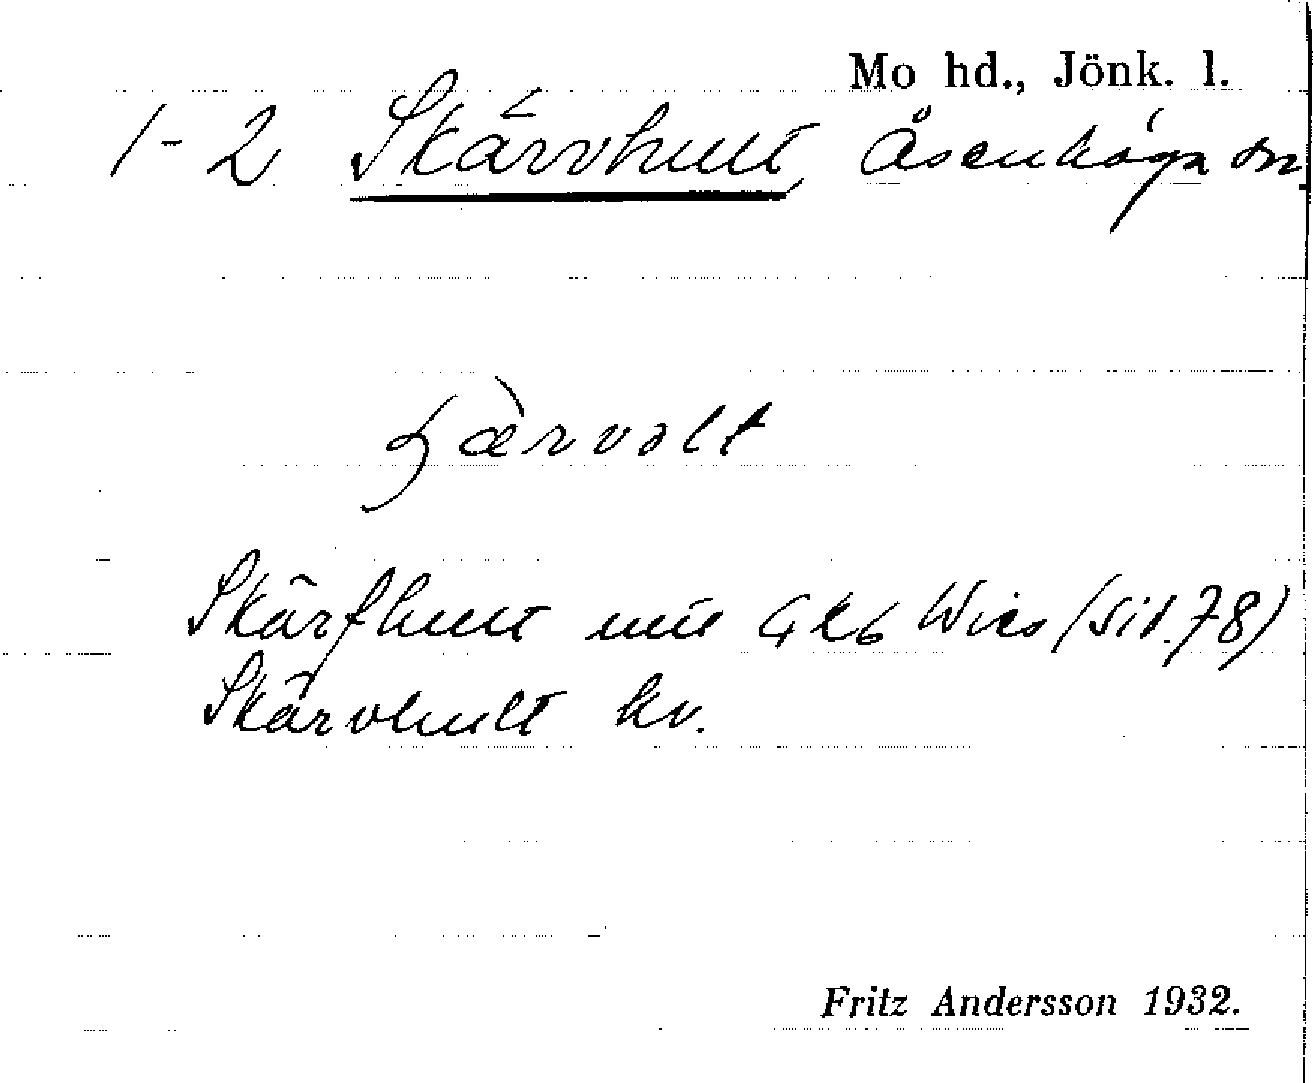 Mo hd., Jönk. l.
1-2 Skärvhult, Åsenhöga sn
ʂærvolt
Skärfhult mtl Wies (sid. 78)
Skärvhult kv.
Fritz Andersson 1932.